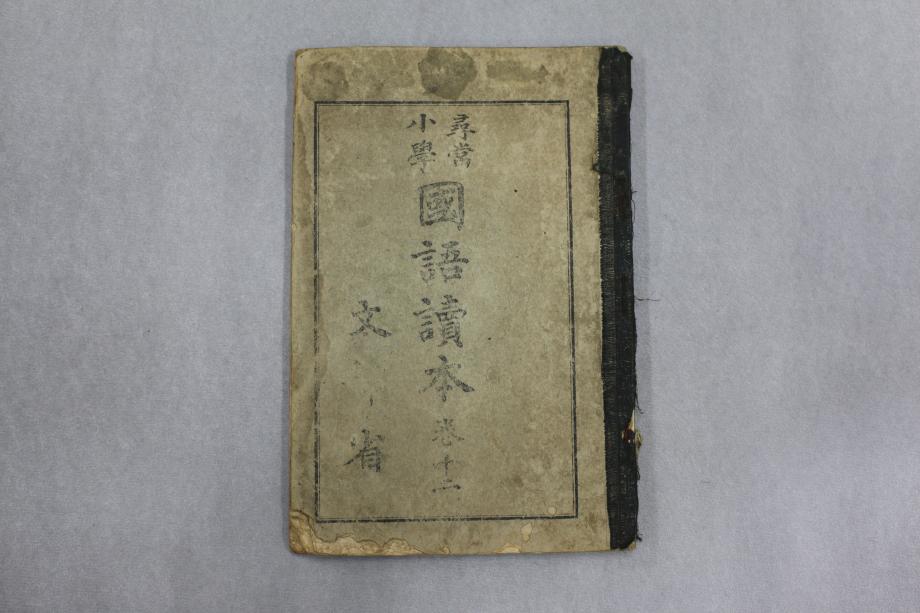 尋常
小學
國語讀本 卷十二
文 省